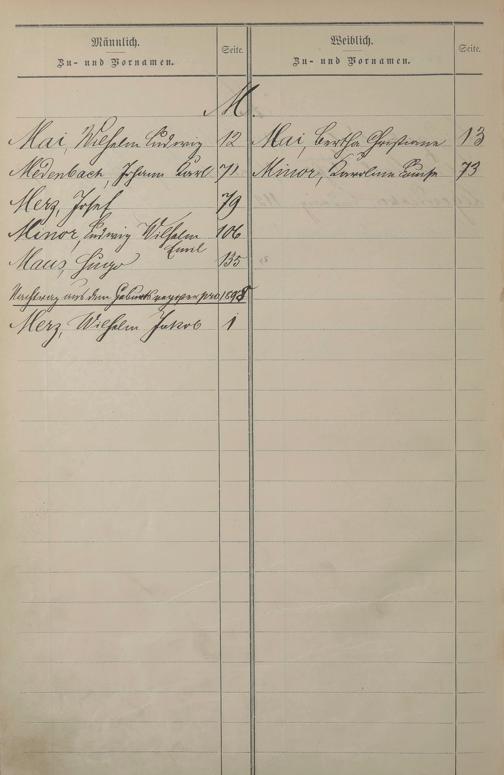 Männlich.
Zu- und Vornamen.
Seite.
Weiblich.
Zu- und Vornamen.
Seite.
M
Mai, Wilhelm Ludwig 12
Mai, Bertha Christiane 13
Medenbach, Johann Karl 71
Minor, Karoline Luise 73
Merz, Josef 79
Minor, Ludwig Wilhelm Emil 106
Maus, Hugo 135
Nachtrag aus dem Geburtsregister pro 1898
Merz, Wilhelm Jakob 1